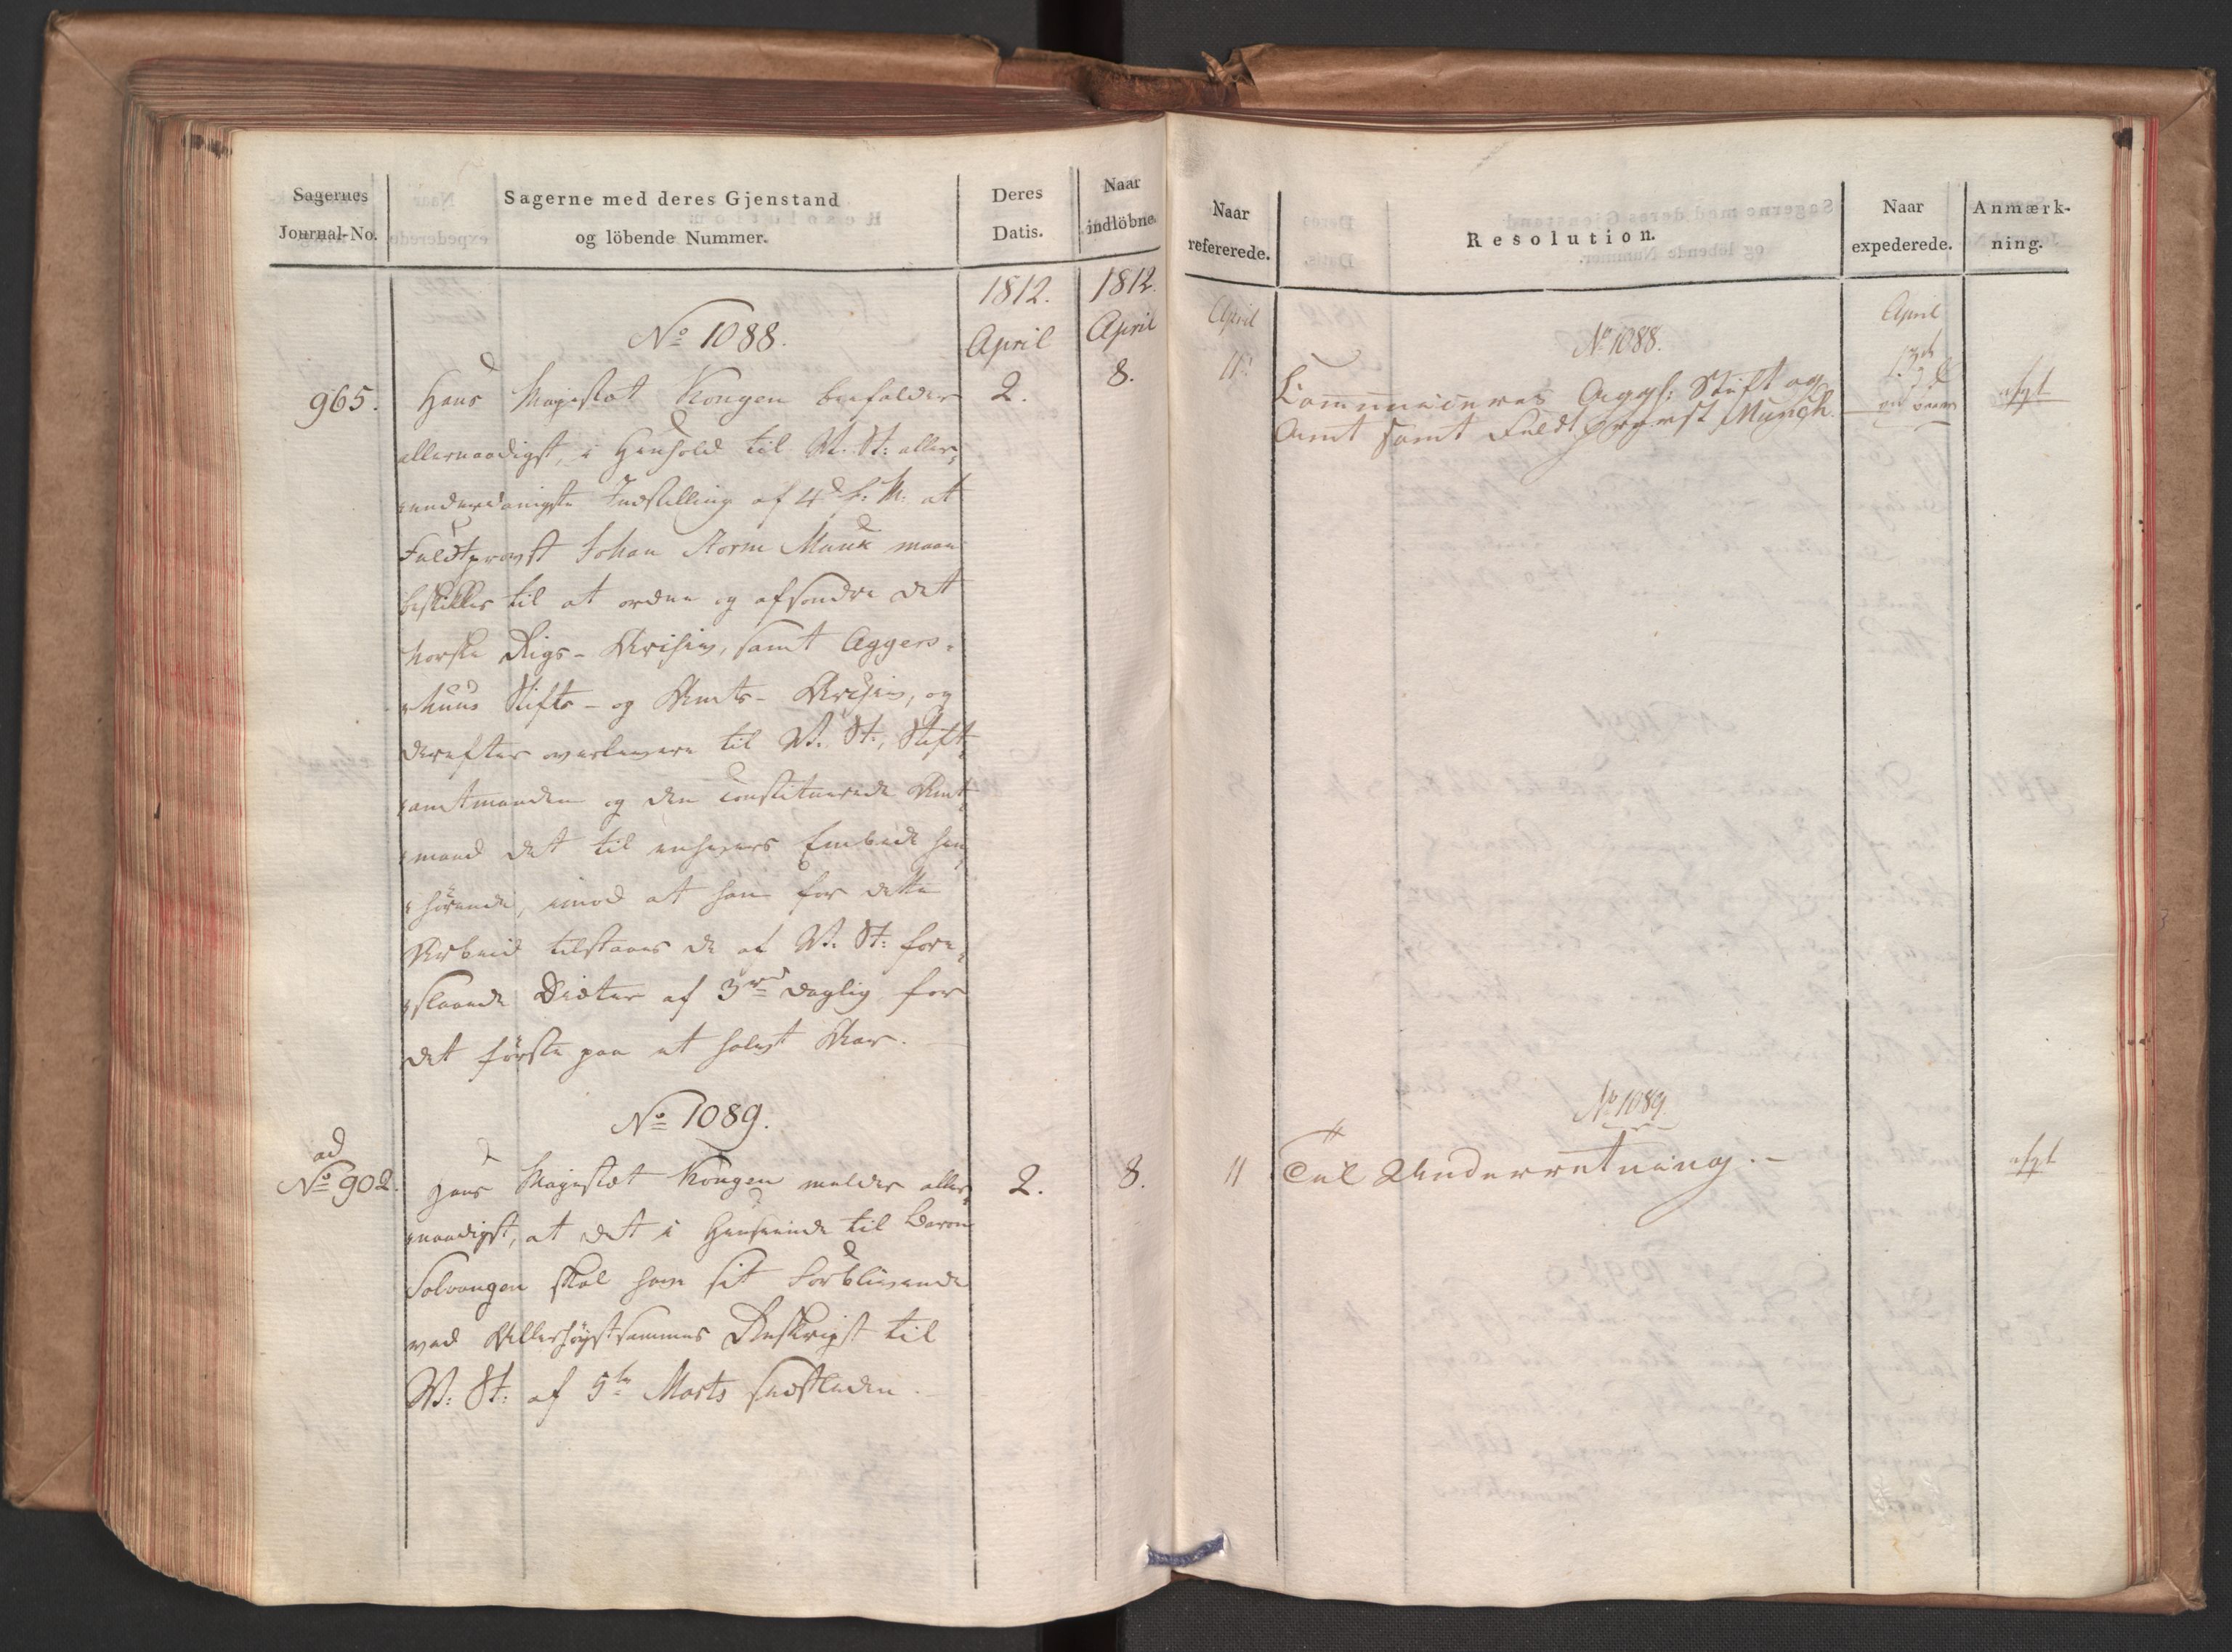 Sagernes
Journal-No.
Sagerne med deres Gjenstand
og löbende Nummer.
Deres
Datis.
Naar
indlöbne.
1812.
April
1812.
April
No 1088.
965.
2.
8.
Hans Majestæt Kongen befalder
allernaadigst, i Henhold til V. St: aller-
underdanigste Indstilling af 4d f: M: at
Feldtprovst Johan Storm Munk maae
beskikkes til at ordne og afsondre det
norske Rigs-Archiv, samt Aggers-
huus Stifts- og Amts-Archiv, og
derefter overlevere til V. St:, Stift-
amtmanden og den constituerede Amt-
mand det til enhvers Embede hen-
hørende, imod at han for dette
Arbeid tilstaaes de af V. St: fore-
slaaede Diæter af 3rd daglig for
det förste paa et halvt Aar.
No 1089.
ad
No 902.
2.
8.
Hans Majestæt Kongen melder aller-
naadigst, at det i Henseende til Baron
skal have sit Forblivende
ved Allerhöystsammes Reskript til
V: St: af 5te Marts sidstleden.
Naar
refererede.
Resolution.
Naar
expederede.
Anmærk-
ning.
April
April
No 1088.
11
13de
Communiceres Aggh: Stift og
Amt samt Feldtprovst Munch.
afgt
No 1089.
11
Til Underretning.
afgt